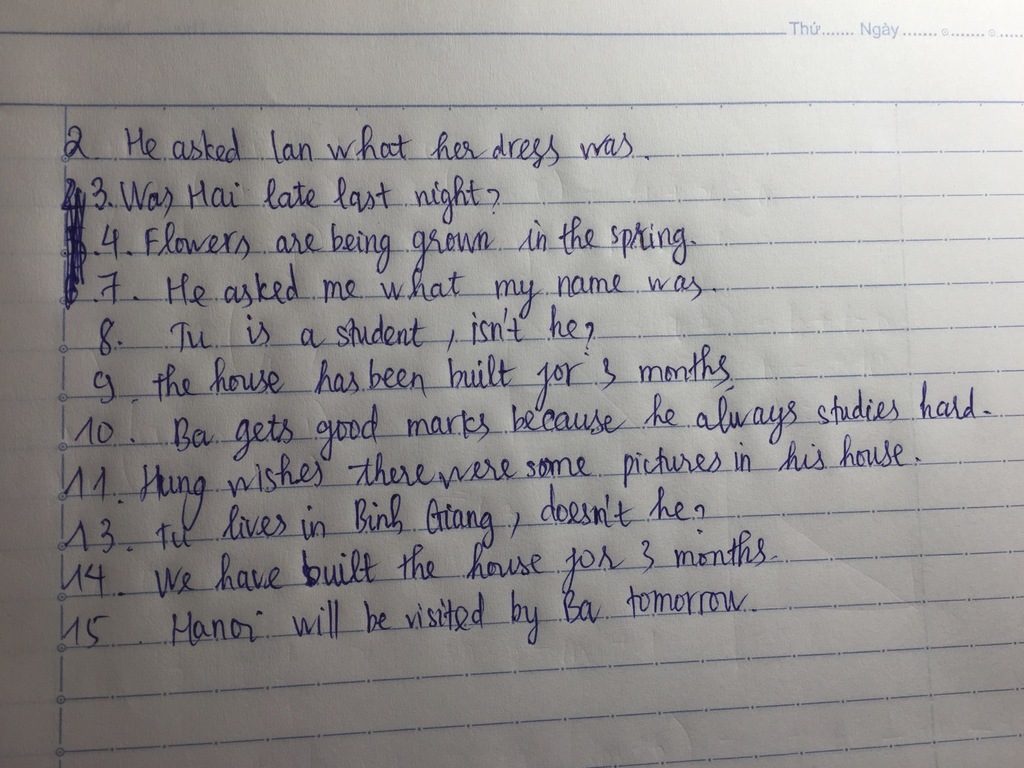 Thứ....... Ngày ....... ....... .......
2 He asked lan what her dress was.
3. Was Hai late last night?
4. Flowers are being grown in the spring.
7. He asked me what my name was.
8. Tu is a student, isn't he?
9. the house has been built for 3 months.
10. Ba gets good marks because he always studies hard.
11. Hung wishes there were some pictures in his house.
13. Tu lives in Binh Giang, doesn't he?
14. We have built the house for 3 months.
15 Hanoi will be visited by Ba tomorrow.